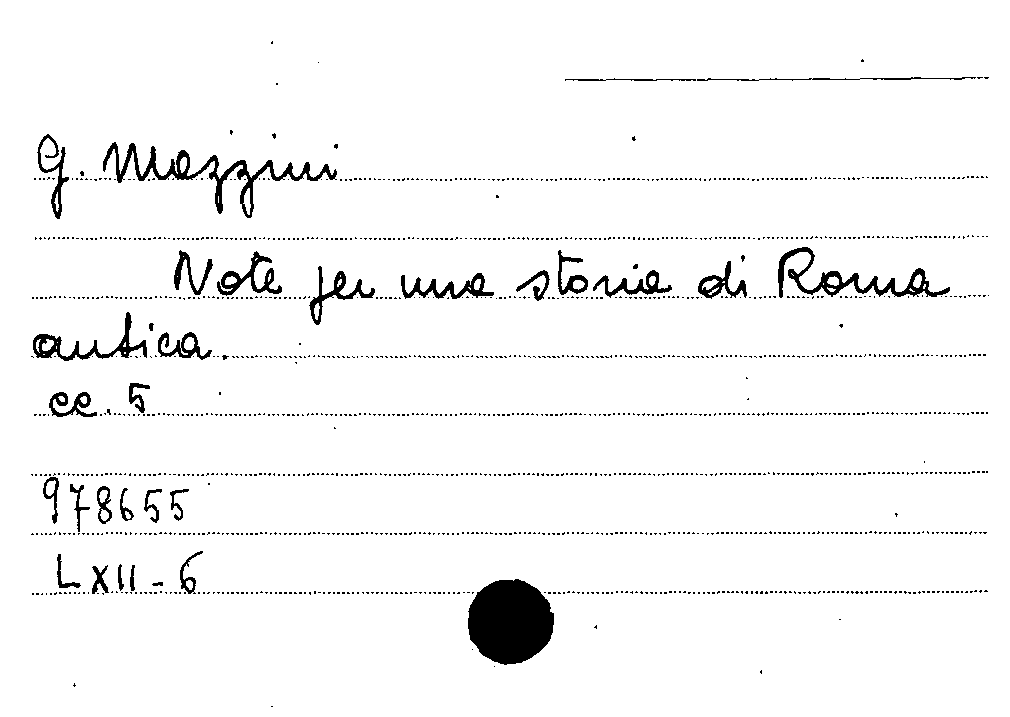 G. Mazzini
Note per una storia di Roma
antica.
cc. 5
978655
LXII - 6